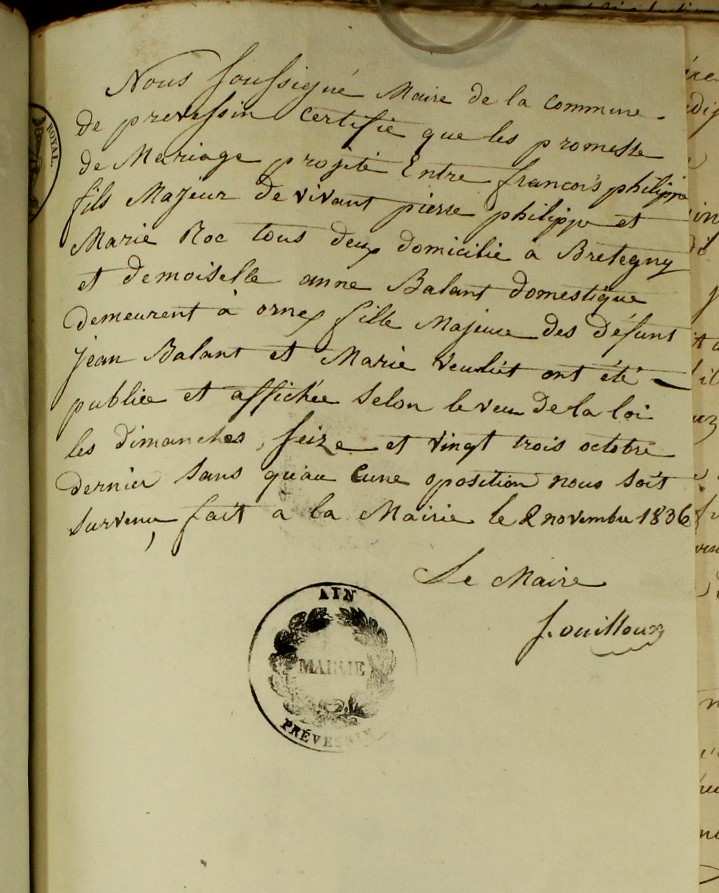 Nous soussigné Maire de la commune
de prevessin certifie que les promesse
de Mariage projeté Entre francois philippe
fils Majeur de vivant pierre philippe et
Marie Roc tous deux domicilié a Bretegny
et demoiselle anne Balant domestique
demeurent à ornex fille Majeure des défunt
jean Balant et Marie ont été
publiée et affichée selon le veu de la loi
les dimanches, seize et vingt trois octobre
dernier sans qu'au cune oposition nous soit
survenu, fait a la Mairie le 2 novembre 1836
Le Maire
f. ouilloux
AIN
MAIRIE
PRÉVESSIN
ROYAL.